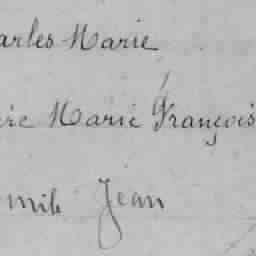 arles Marie
ire Marie François
mile Jean